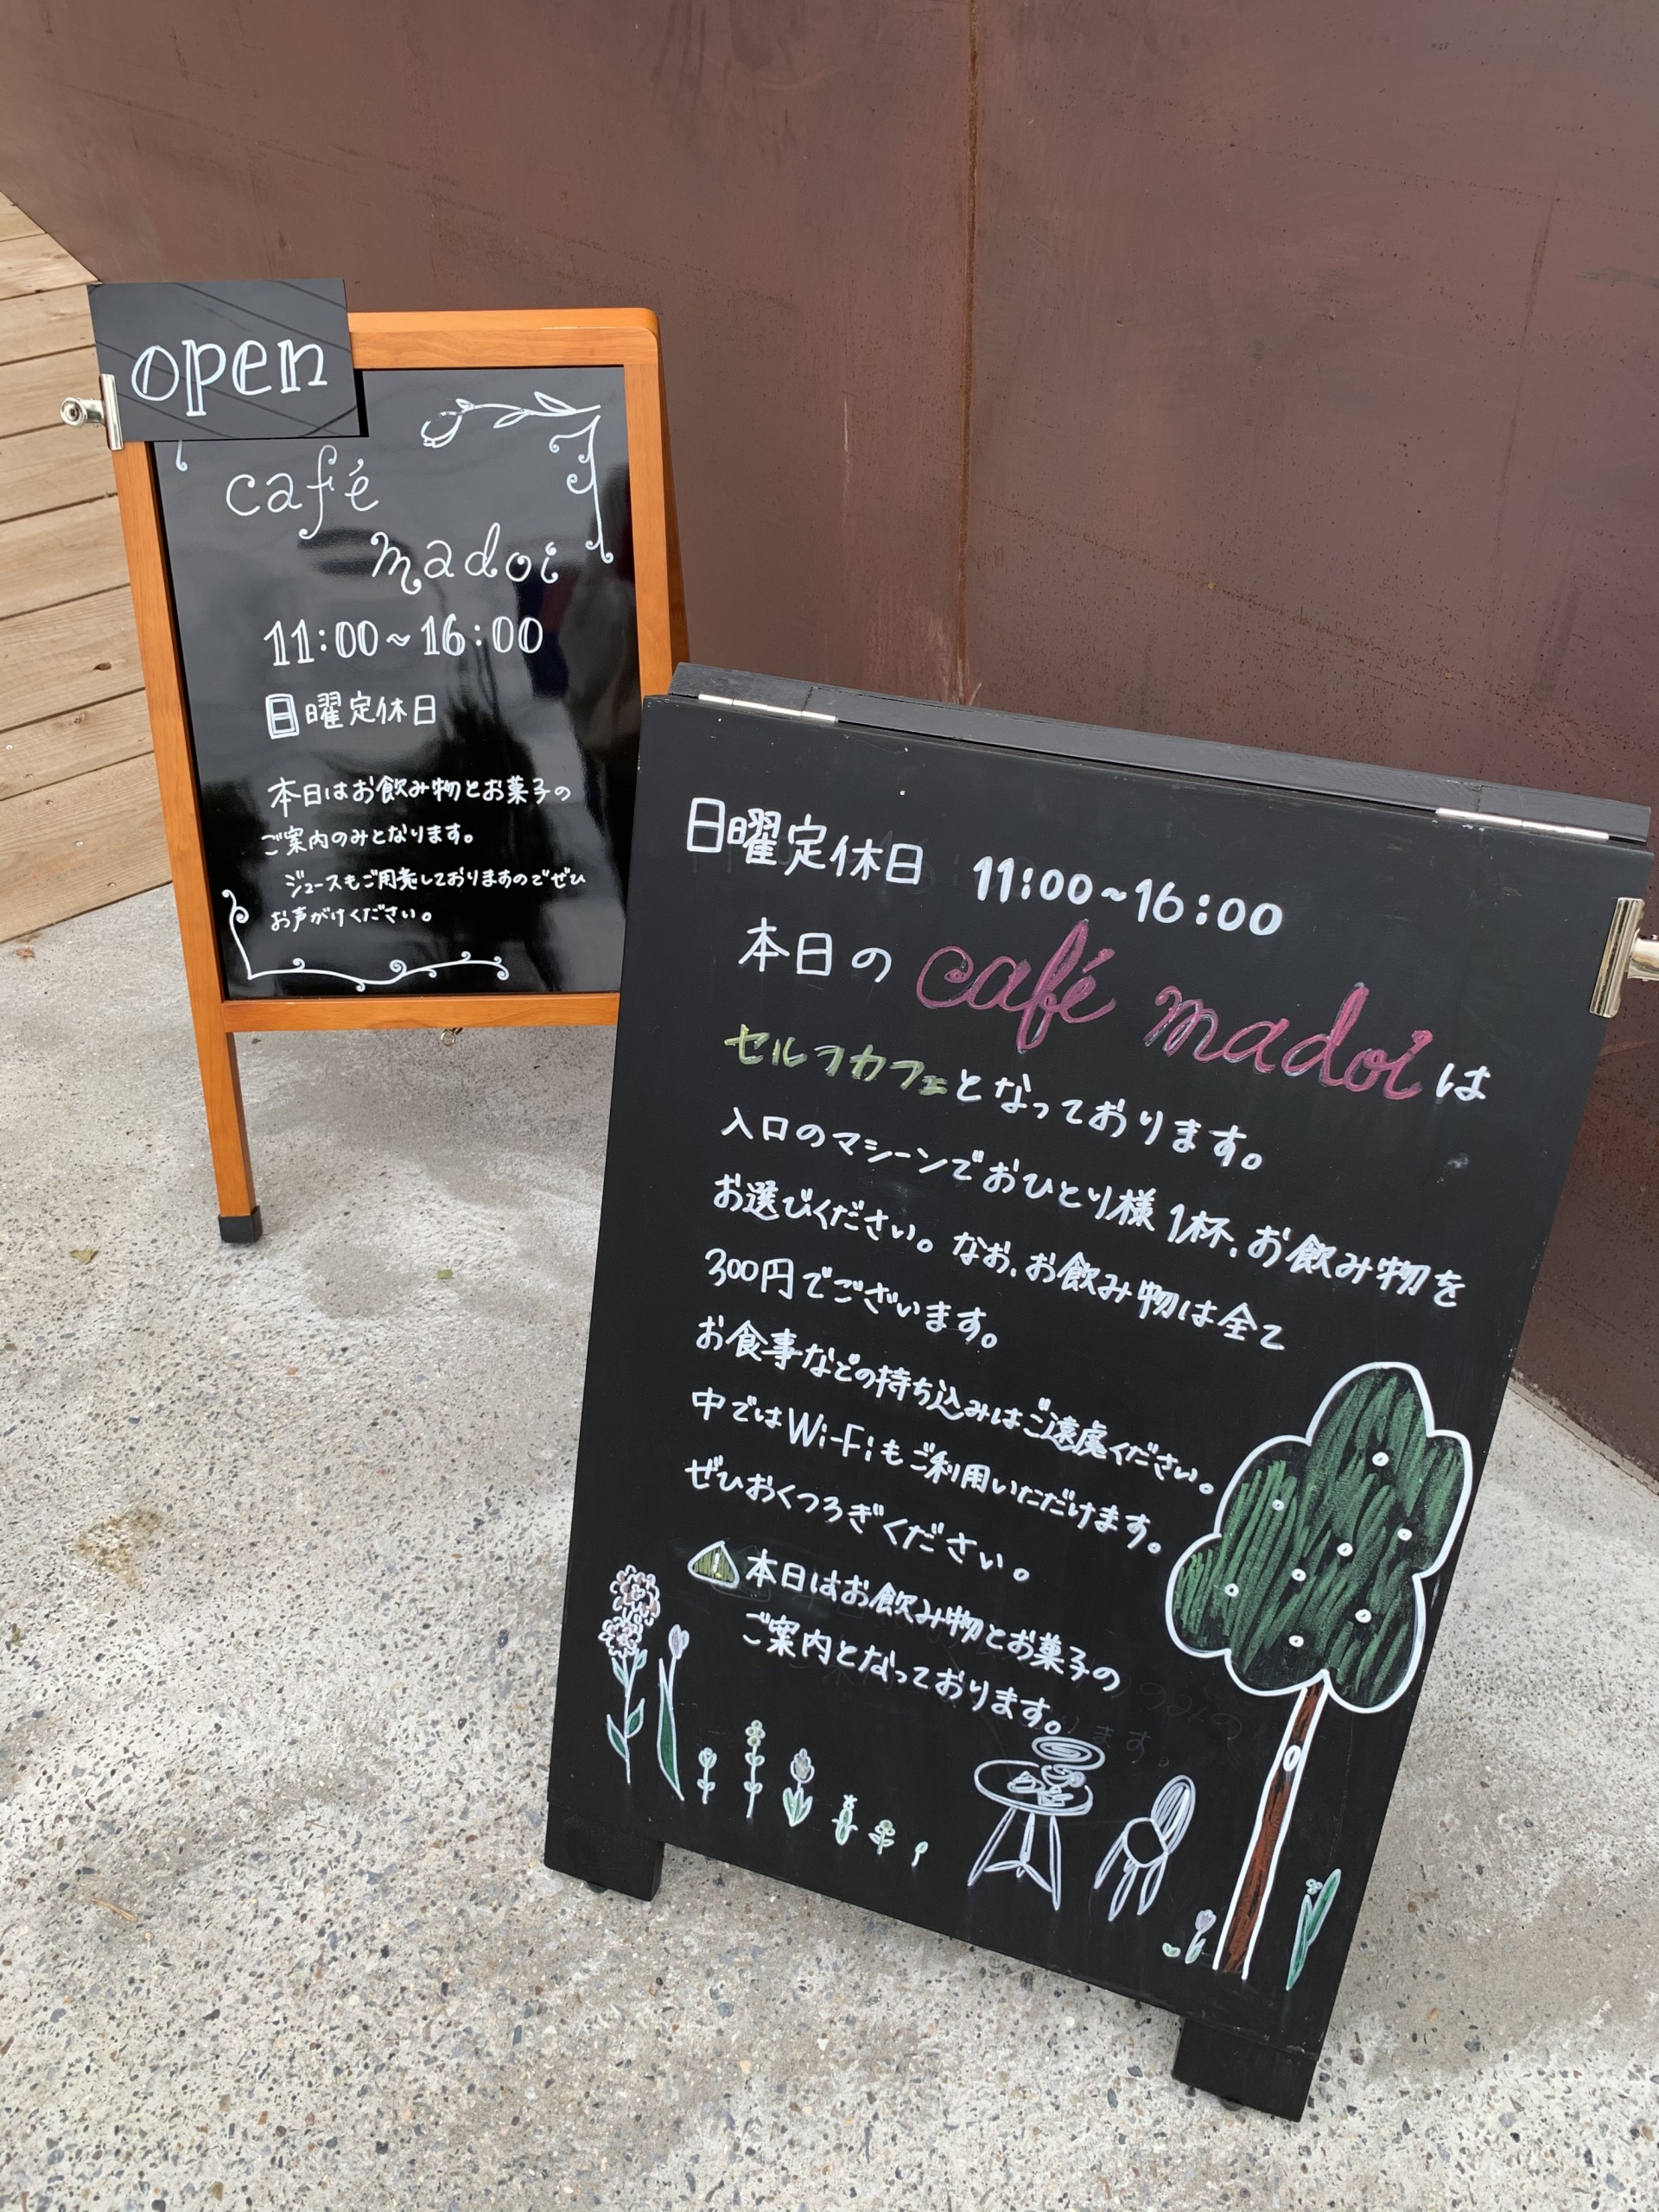 open
café
madoi
11:00~16:00
日曜定休日
本日はお飲み物とお菓子の
ご案内のみとなります。
ジュースもご用意しておりますのでぜひ
お声がけください。
日曜定休日 11:00~16:00
本日の café madoi は
セルフカフェとなっております。
入口のマシーンでおひとり様1杯、お飲み物を
お選びください。なお、お飲み物は全て
300円でございます。
お食事などの持ち込みはご遠慮ください。
中ではWi-Fiもご利用いただけます。
ぜひおくつろぎください。
本日はお飲み物とお菓子の
ご案内となっております。